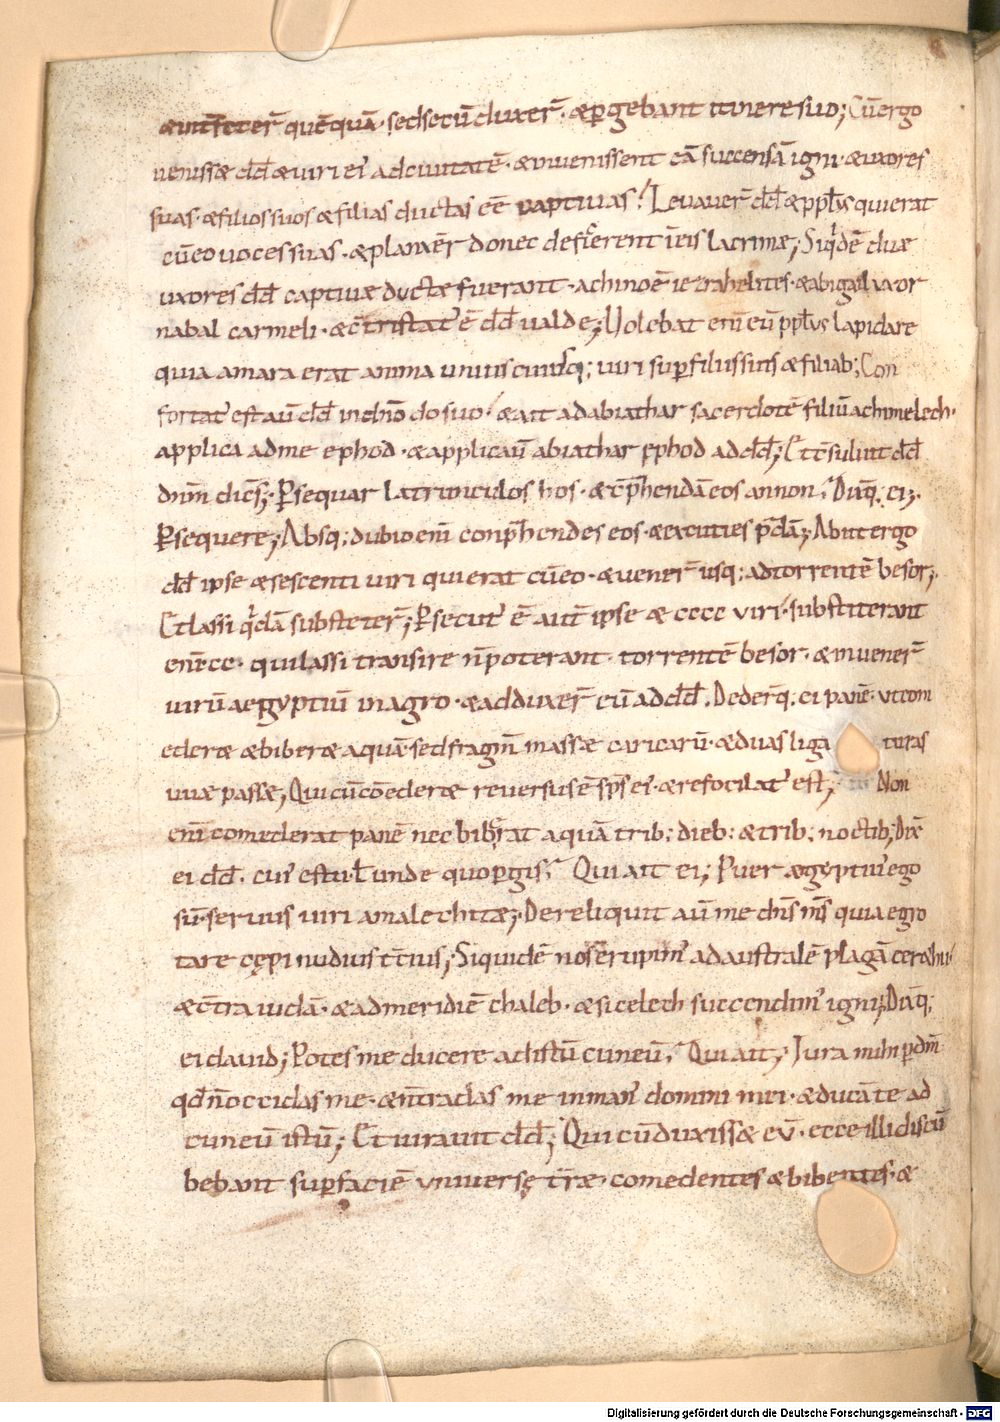 &intfecer̄ quēquā· sed secū duxer̄· & ꝑgebant itinere suo; Cū ergo
uenissæ dd̄ & uiri ei' ad ciuitatē· & inuenissent eā succensā igni· & uxores
suas· & filios suos & filias ductas eē captiuas! Leuauer̄ dd̄ & ppl̄s qui erat
cū eo uoces suas· & planxēr donec deficerent in eis lacrimæ; Siqdē duæ
uxores dd̄ captiuæ ductæ fuerant· achinoē iezrahelites· & abigail uxor
nabal carmeli· & c̄tristat' ē dd̄ ualde; Uolebat enī eū ppl̄s lapidare
quia amara erat anima uniuscuiusq; uiri suꝑ filiis suis & filiab; Con
fortat' est aū dd̄ in dn̄o dō suo! & ait ad abiathar sacerdotē filiū achimelech·
applica ad me ephod· & applicauī abiathar ephod ad dd̄; Et c̄suluit dd̄
dnm̄ dices̄; Ꝑsequar latrunculos hos· & c̄p̄hendā eos an non; Dixq̄; ei;
Ꝑsequere; Absq; dubio enī conp̄hendes eos· & excuties p̄dā; Abiit ergo
dd̄ ipse & sescenti uiri qui erat cū eo· & uener̄ usq; ad torrentē besor;
Et lassi qdā substeter̄; Ꝑsecut' ē aut̄ ipse & cccc uiri· substiterant
eni cc· qui lassi transire n̄ poterant· torrentē besor· & inuener̄
uirū aegyptiū in agro· & adduxer̄ eū ad dd̄. Dederq̄; ei panē· ut com
ederæ & biberæ aquā· sed fragm̄ massæ caricarū· & duas liga turas
uuæ passæ; Qui cū cōederæ reuersus ē sps̄ ei'· & refocilat' est; Non
enī comederat panē nec biberat aquā trib; dieb; & trib; noctib; Dix̄
ei dd̄. cui' es tu· ł unde quo ꝑgis; Qui ait ei; Puer ægyptiu' ego
sū· seruus uiri amalechitæ; Dereliquit aū me dns̄ ms̄ quia egro
tare cępi nudius t̄cius; Siquidē nos erupim' ad australē plagā cerethi·
& c̄tra iudā· & ad meridiē chaleb· & sicelech succendim' igni; Dixq̄;
ei dauid; Potes me ducere ad istū cuneū; Qui ait; Iura mihi ꝑ dm̄
qd n̄ occidas me· & n̄ tradas me in man' domini mei· & ducā te ad
cuneū istū; Et iurauit dd̄; Qui cū duxissæ eū· ecce illi discū
bebant suꝑ faciē uniuersę tr̄æ· comedentes & bibentes· &
Digitalisierung gefördert durch die Deutsche Forschungsgemeinschaft - DFG